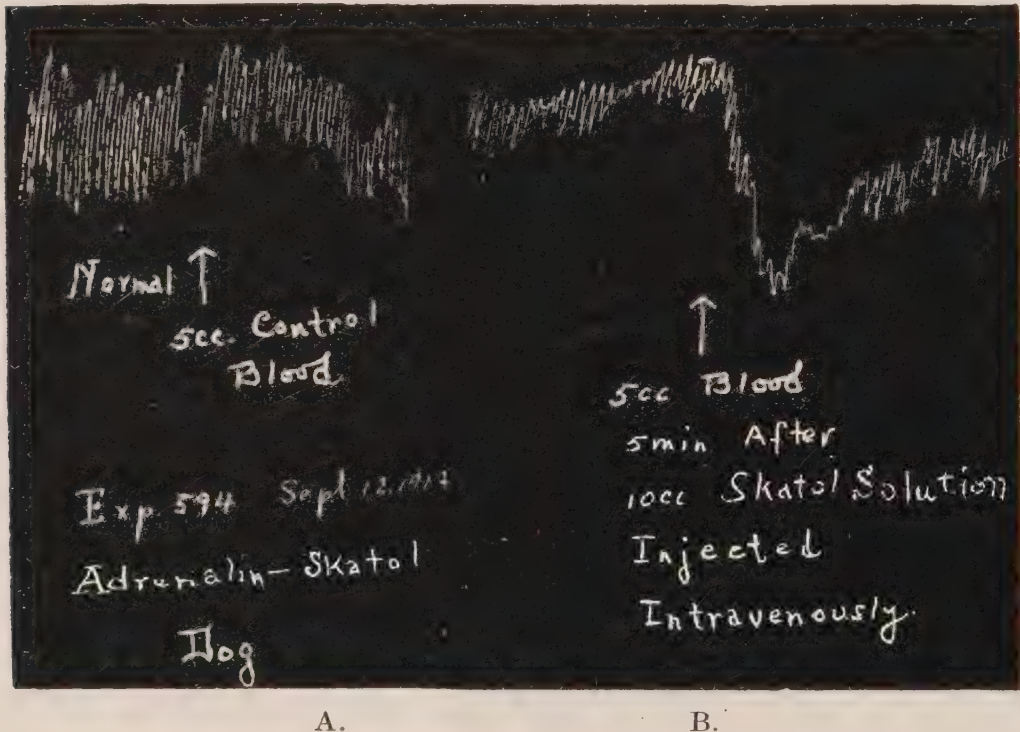 Normal
5cc. Control
Blood
Exp 594 Sept
Adrenalin-Skatol
Dog
5cc Blood
5min After
10cc Skatol Solution
Injected
Intravenously.
A. B.